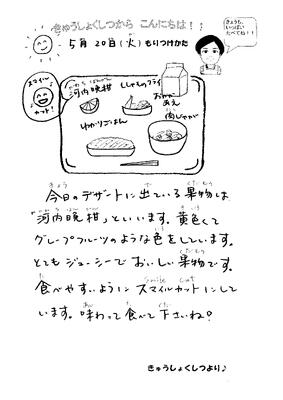 きゅうしょくしつから こんにちは！♪
5月20日(火)もりつけかた
きょうも、
いっぱい
たべてね！！
スマイル
カット！
かわちばんかん
河内晩柑
ししゃものフライ
おかか
あえ
ゆかりごはん
肉じゃが
今日のデザートに出ている果物は
"河内晩柑"といいます。黄色くて
グレープフルーツのような色をしています。
とてもジューシーでおいしい果物です。
食べやすいようにスマイルカットにして
います。味わって食べて下さいね？
きゅうしょくしつより♪